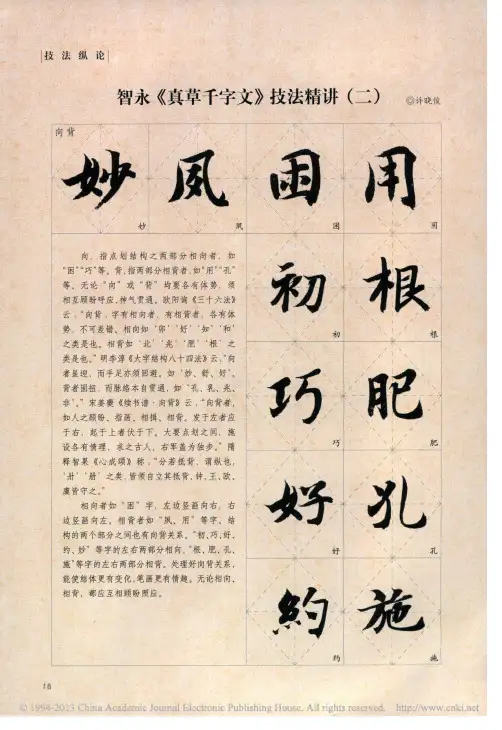 技法纵论
智永《真草千字文》技法精讲（二）
◎许晓俊
向背
妙 夙 困 用
妙 夙 困 用
初 根
初 根
巧 肥
巧 肥
好 孔
好 孔
約 施
约 施
向，指点划结构之两部分相向者，如
“困”“巧”等。背，指两部分相背者，如“用”“孔”
等。无论“向”或“背”均要各有体势，须
相互顾盼呼应，神气贯通。欧阳询《三十六法》
云，“向背，字有相向者，有相背者，各有体
势，不可差错。相向如‘卯’‘好’‘知’‘和’
之类是也。相背如‘北’‘兆’‘肥’‘根’之
类是也。”明李淳《大字结构八十四法》云，“向
者虽迎，而手足亦须回避。如‘妙、舒、好’。
背者固扭，而脉络本自贯通，如‘孔、乳、兆、
非’。”宋姜夔《续书谱·向背》云，“向背者，
如人之顾盼、指画、相揖、相背。发于左者应
于右，起于上者伏于下。大要点划之间，施
设各有情理，求之古人，右军盖为独步。”隋
释智果《心成颂》称，“分若抵背，谓纵也，
‘卅’‘册’之类，皆须自立其抵背，钟、王、欧、
虞皆守之。”
相向者如“困”字，左边竖画向右，右
边竖画向左。相背者如“夙、用”等字。结
构的两个部分之间也有向背关系，“初、巧、好、
约、妙”等字的左右两部分相向，“根、肥、孔、
施”等字的左右两部分相背。处理好向背关系，
能使结体更有变化，笔画更有情趣。无论相向、
相背，都应互相顾盼照应。
18
© 1994-2013 China Academic Journal Electronic Publishing House. All rights reserved. http://www.cnki.net